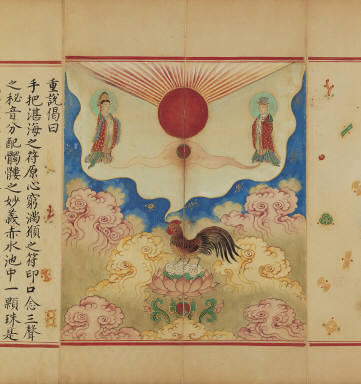 重說偈曰
手把湛海之符原心窮滿㺚之符印口念三聲
之秘音分配髑髏之妙義赤水池中一顆珠是